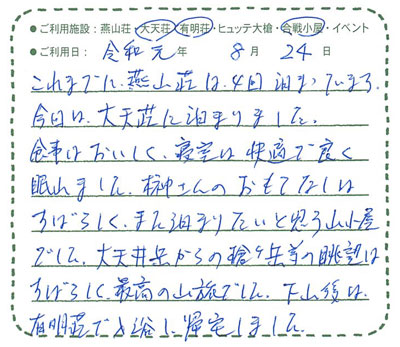 ●ご利用施設：燕山荘・大天荘・有明荘・ヒュッテ大槍・合戦小屋・イベント
●ご利用日： 令和元年 8月 24日
これまでに、燕山荘は、4回泊まっている。
今回は、大天荘に泊まりました。
食事はおいしく、寝室は快適で良く
眠れました。榊さんのおもてなしは
すばらしく、また泊まりたいと思う山小屋
でした。大天井岳からの槍ヶ岳等の眺望は
すばらしく、最高の山旅でした。下山後は、
有明荘で入浴し帰宅しました。